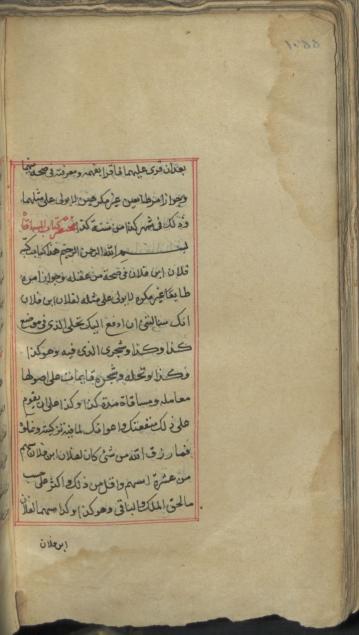 ١٠٥٥
بعد ان قرى عليهما فاقرا بفهمه ومعرفته في صحة منهما
وجواز امر طايعين غير مكرهين لا يولى على مثلهما
وذلك في شهر كذا من سنة كذا كتاب المساقاة
بسم الله الرحمن الرحيم هذا كتاب كتبه
فلان ابن فلان في صحة من عقله وجواز امره
طايعا غير مكره لا يولى على مثله لفلان ابن فلان
انك سالتني ان ادفع اليك نخلى الذى في موضع
كذا وكذا وشجرى الذى فيه وهو كذا
وكذا ونخله وشجره قايمات على اصولها
معاملة ومساقاة مدة كذا وكذا على ان يقوم
على ذلك
فما رزق الله من شئ كان لفلان ابن فلان سهم
من عشرة اسهم واقل من ذلك واكثر على حسب
مالحق الملك والباقى وهو كذا وكذا سهما لفلان
ابن فلان